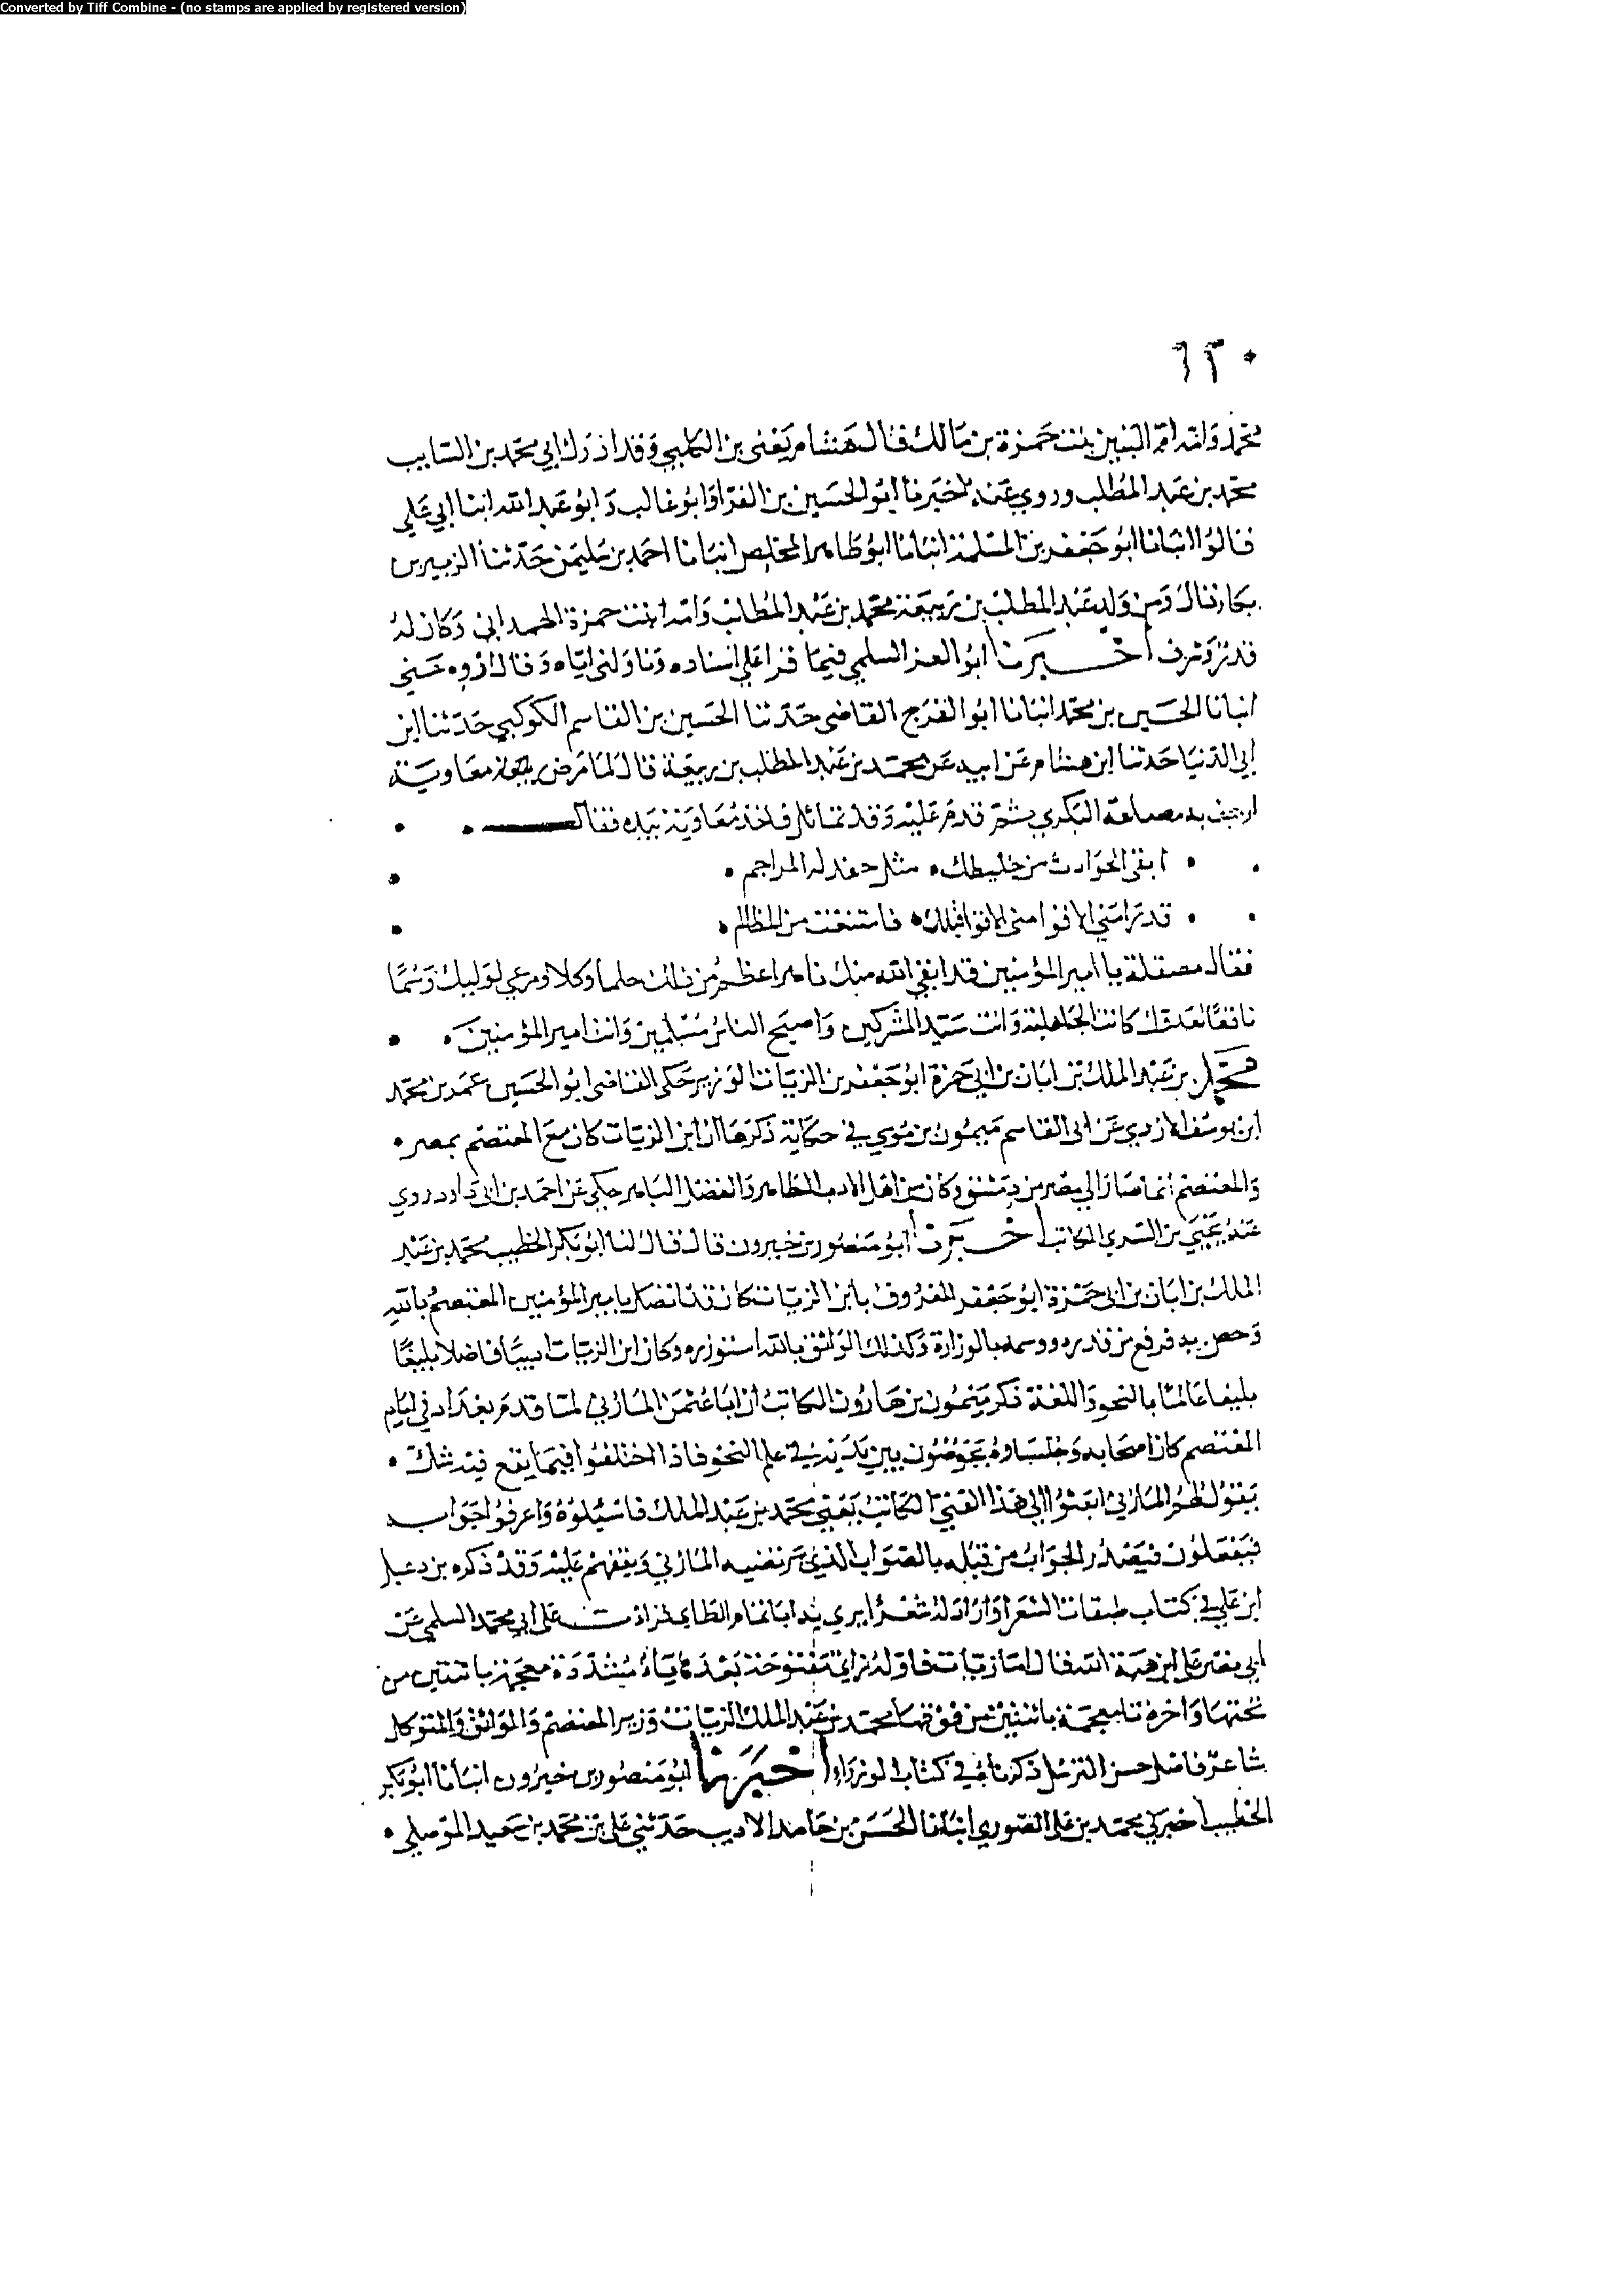 Converted by Tiff Combine - (no stamps are applied by registered version)
٦٣٠
محمد وامه ام البنين بنت حمزة بن مالك قال هشام يعني بن الكلبي وقد ادرك ابي محمد بن السايب
محمد بن عبد المطلب وروي عنه اخبرنا ابو الحسين بن الفرا وابو غالب وابو عبد الله ابنا ابي علي
قالوا انبانا ابو جعفر بن المسلمة انبانا ابو طاهر المخلص انبانا احمد بن سليمن حدثنا الزبير بن
بكار قال ومن ولد عبد المطلب بن ربيعة محمد بن عبد المطلب وامه ابنت حمزة الهمداني وكان له
قدر وشرف اخبرنا ابو العز السلمي فيما قرا علي اسناده وناولني اياه وقال اروه عني
انبانا الحسين بن محمد انبانا ابو الفرج القاضي حدثنا الحسين بن القاسم الكوكبي حدثنا ابن
ابي الدنيا حدثنا ابن هشام عن ابيه عن محمد بن عبد المطلب بن ربيعة قال لما مرض معاوية
ارجف به مصقلة البكري ثم قدم عليه وقد تماثل فاخذ معاوية بيده فقال
ابقى الحوادث من خليطك مثل جندلة المراجم
قد رامني الاقوام قبلك فامتنعت من المظالم
فقال مصقلة يا امير المؤمنين قد ابقى الله منك ما هو اعظم من ذلك حلما وكلا ومرعى لوليك وسما
ناقعا لعدوك كانت الجاهلية وانت سيد المشركين واصبح الناس مسلمين وانت امير المؤمنين
محمد بن عبد الملك بن ابان بن ابي حمزة ابو جعفر بن الزيات الوزير حكى القاضي ابو الحسين عمر بن محمد
ابن يوسف الازدي عن ابي القاسم ميمون بن موسى في حكاية ذكرها ان ابن الزيات كان مع المعتصم بمصر
والمعتصم انما صار الي مصر من دمشق وكان من اهل الادب الظاهر والفضل الباهر حكي عن احمد بن ابي داود روي
عنه يحيي بن السري الكاتب اخبرنا ابو منصور بن خيرون قال قال لنا ابو بكر الخطيب محمد بن عبد
الملك بن ابان بن ابي حمزة ابو جعفر المعروف بابن الزيات كان قد اتصل بامير المؤمنين المعتصم بالله
وخص به فرفع من قدره ووسمه بالوزارة وكذلك الواثق بالله استوزره وكان ابن الزيات اديبا فاضلا بليغا
بليغا عالما بالنحو واللغة ذكر ميمون بن هارون الكاتب ان ابا عثمن المازني لما قدم بغداد في ايام
المعتصم كان اصحابه وجلساوه يخوضون بين يديه في علم النحو فاذا اختلفوا فيما يقع فيه شك
يقول لهم المازني ابعثوا الي هذا الفتي الكاتب يعني محمد بن عبد الملك فاسئلوه واعرفوا جوابه
فيفعلون فيصدر الجواب من قبله بالصواب الذي يرتضيه المازني ويقفهم عليه وقد ذكره بن دعبل
ابن علي في كتاب طبقات الشعرا واراد له شعرا يري به ابا تمام الطاي قرات علي ابي محمد السلمي عن
ابي نصر علي بن هبة الله قال اما زيات فاوله زاي مفتوحة بعدها ياء مشددة معجمة باثنتين من
تحتها واخره تا معجمة باثنتين من فوقها محمد بن عبد الملك الزيات وزير المعتصم والواثق والمتوكل
شاعر فاضل حسن الترسل ذكرناه في كتاب الوزراء اخبرنا ابو منصور بن خيرون انبانا ابو بكر
الخطيب اخبرني محمد بن علي الصوري انبانا الحسن بن حامد الاديب حدثني علي بن محمد بن سعيد الموصلي